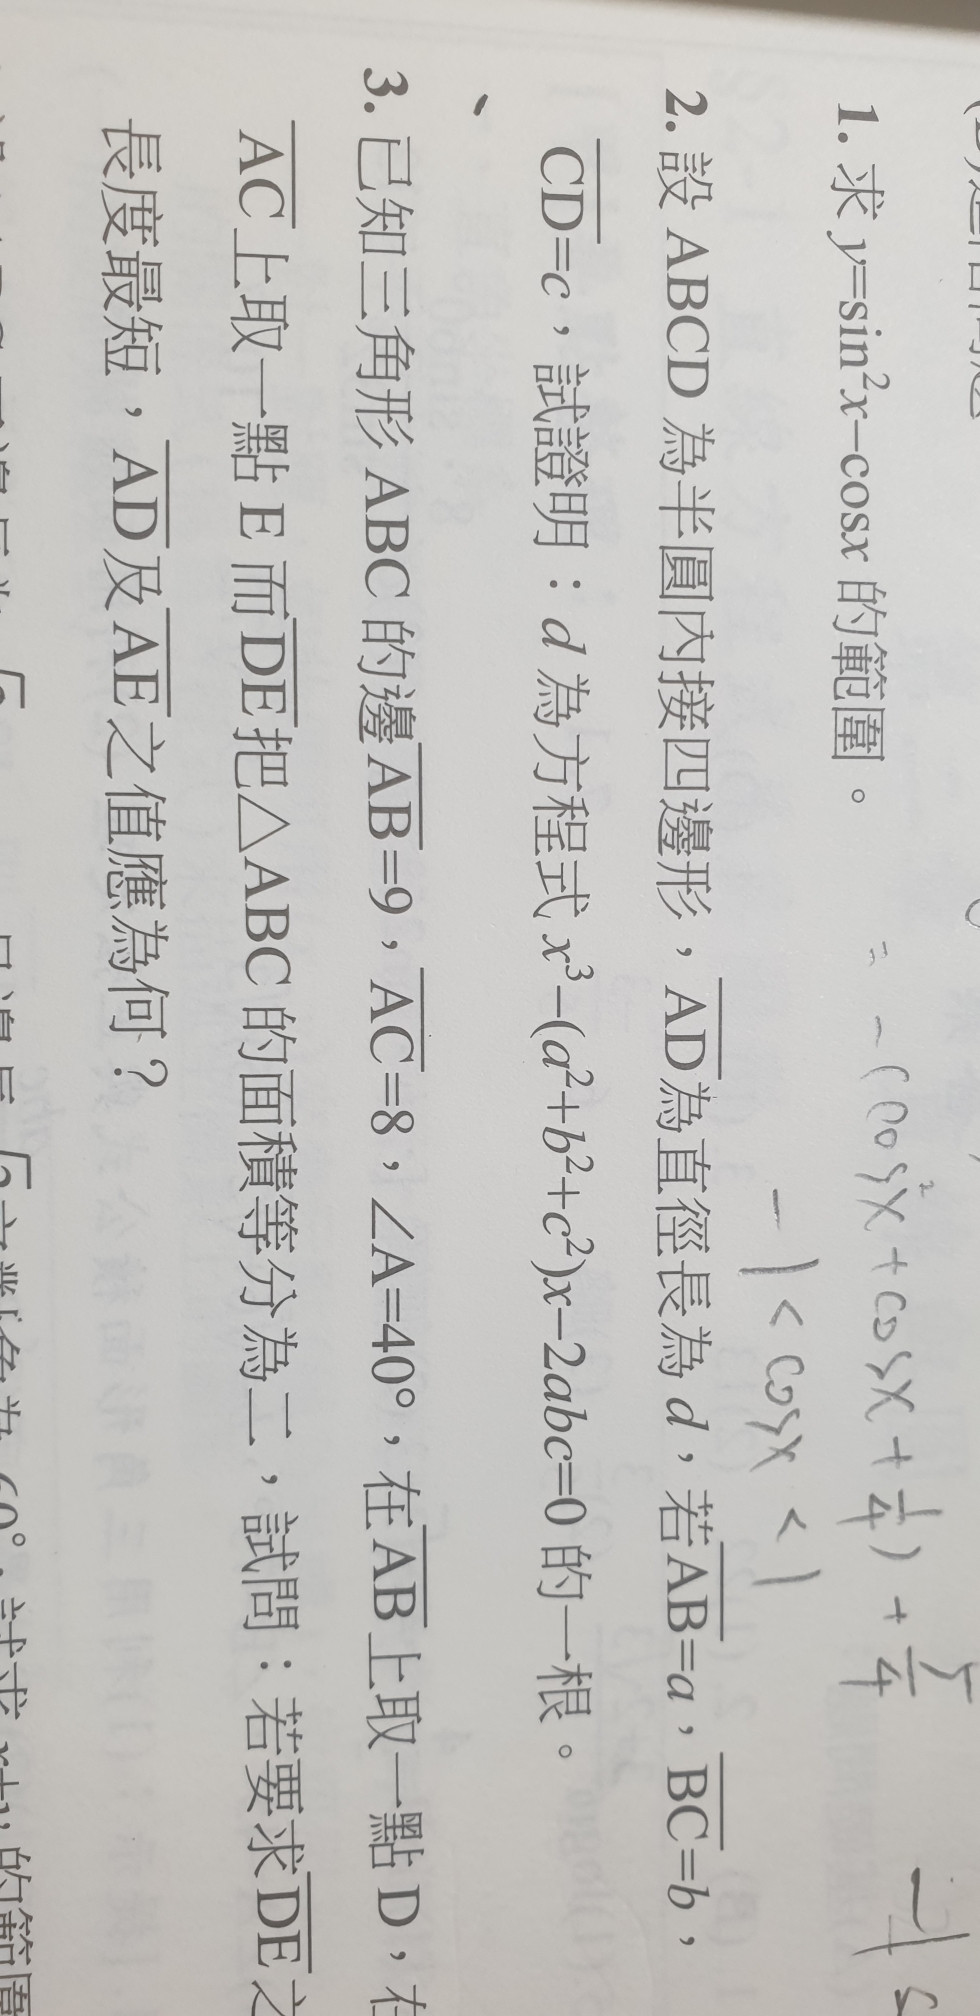 1. 求 y=sin²x−cosx 的範圍。
= −(cos²x + cosx + 1/4) + 5/4
−1 < cosx < 1
2. 設 ABCD 為半圓內接四邊形，AD為直徑長為 d，若AB=a，BC=b，
CD=c，試證明：d 為方程式 x³−(a²+b²+c²)x−2abc=0 的一根。
3. 已知三角形 ABC 的邊AB=9，AC=8，∠A=40°，在AB上取一點 D，在
AC上取一點 E 而DE把△ABC 的面積等分為二，試問：若要求DE之
長度最短，AD及AE之值應為何？
角為 60°，試求 x+y 的範圍